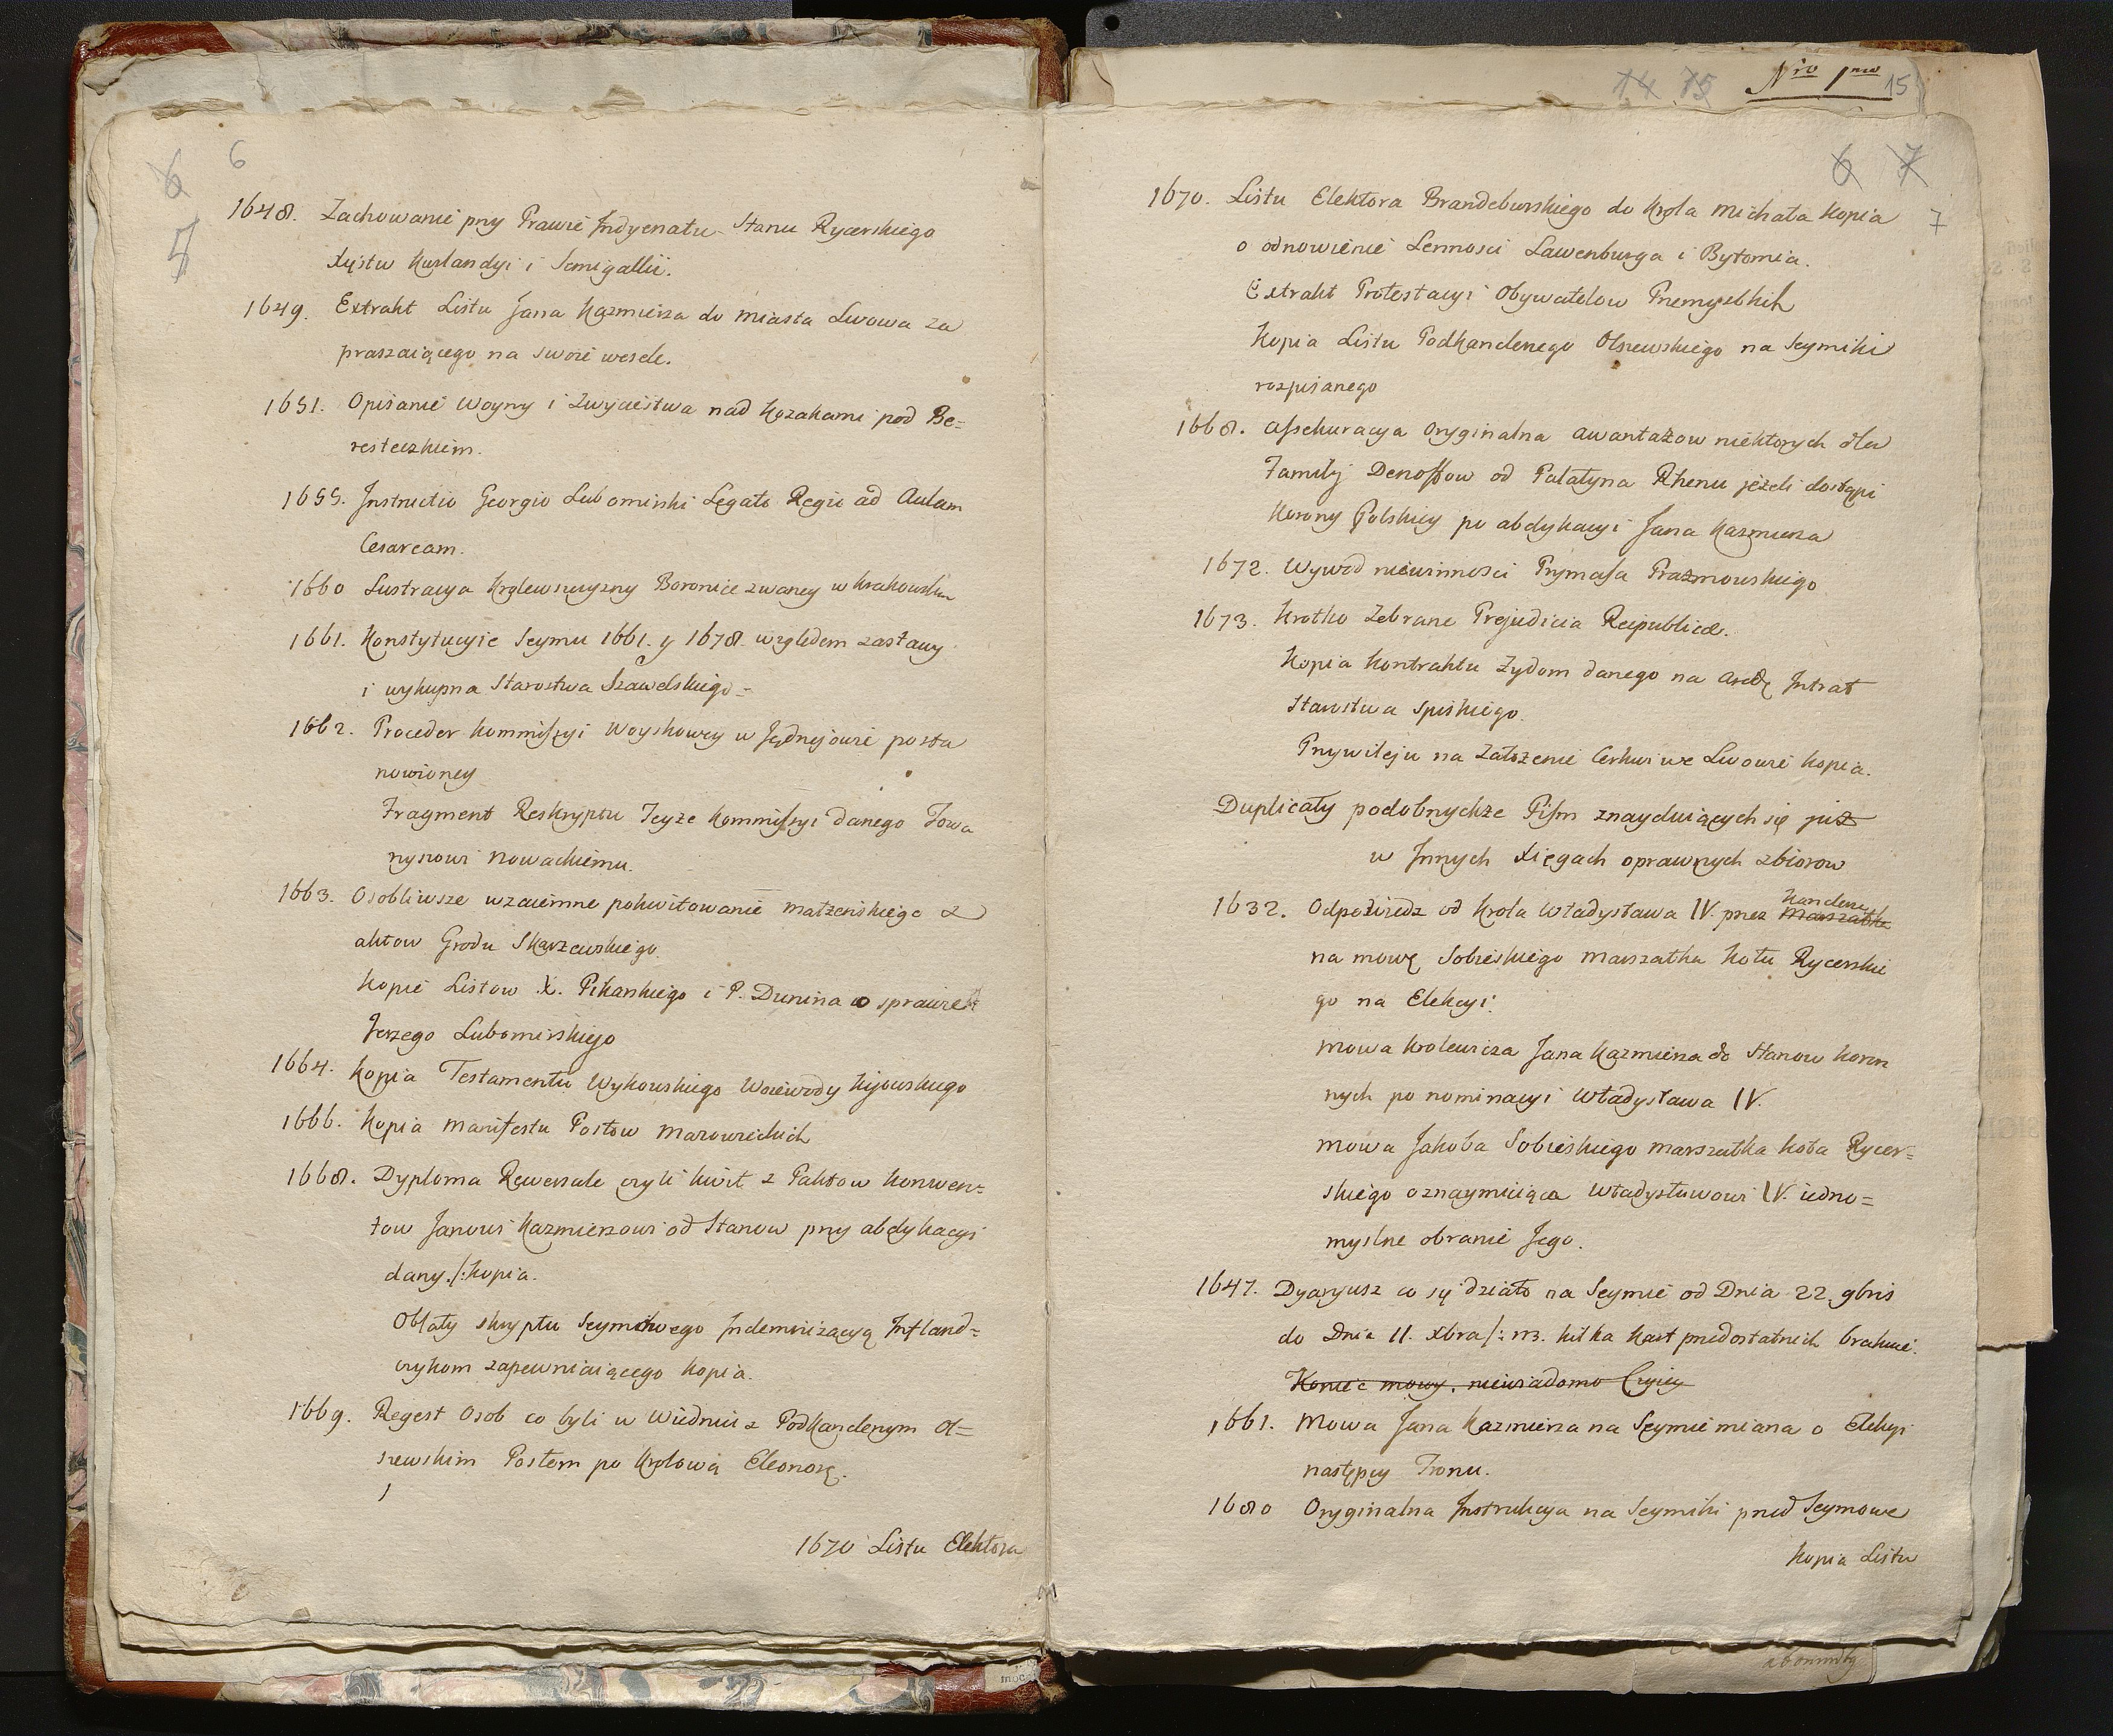 6 6
5
1648. Zachowanie przy Prawie Indygenatu Stanu Rycerskiego
Xięstw Kurlandyi i Semigallii.
1649. Extrakt Listu Jana Kazmierza do Miasta Lwowa za
praszaiącego na swoie wesele.
1651. Opisanie Woyny i Zwycięstwa nad Kozakami pod Be=
resteczkiem.
1655. Instructio Georgio Lubomirski Legato Regio ad Aulam
Cesaream.
1660 Lustracya Krolewszczyzny Boronice zwaney w Krakowskim
1661. Konstytucyie Seymu 1661. y 1678. względem zastawy
i wykupna Starostwa Szawelskiego =
1662. Proceder Kommissyi Woyskowey w Jędrzejowie posta
nowioney
Fragment Reskryptu Teyże Kommissyi danego Towa
rzyszowi Nowackiemu.
1663. Osobliwsze wzaiemne pokwitowanie małżeńskiego z
aktow Grodu Skarzewskiego.
Kopie Listow X. Pikarskiego i P. Dunina o sprawie
Jerzego Lubomirskiego
1664. Kopia Testamentu Wyhowskiego Woiewody Kijowskiego
1666. Kopia Manifestu Posłow Mazowieckich
1668. Dyploma Rewersale czyli kwit z Paktow Konwen=
tow Janowi Kazmierzowi od Stanow przy abdykacyi
dany./: Kopia.
Oblaty skryptu Seymowego Indemnizacyą Infland=
czykom zapewniaiącego Kopia.
1669. Regest Osob co byli w Wiedniu z Podkanclerzym Ol=
szewskim Posłem po Krolową Eleonorę.
1670 Listu Elektora
14 15 Nro 1mo 15
6 7
7
1670. Listu Elektora Brandeburskiego do Krola Michała Kopia
o odnowienie Lennosci Lawenburga i Bytomia.
Extrakt Protestacyi Obywatelow Przemyslskich
Kopia Listu Podkanclerzego Olszewskiego na Seymiki
rozpisanego
1668. Assekuracya Oryginalna awantażow niektorych dla
Familij Denoffow od Palatyna Rhenu jeżeli dostąpi
Korony Polskiey po abdykacyi Jana Kazmierza
1672. Wywod niewinnosci Prymasa Prażmowskiego
1673. Krotko Zebrane Prejudicia Reipublicæ.
Kopia Kontraktu Zydom danego na Arędę Intrat
Starostwa Spiskiego.
Przywileju na Założenie Cerkwi we Lwowie Kopia.
Duplicaty podobnychże Pism znayduiących się już
w Innych Xięgach oprawnych zbiorow
1632. Odpowiedz od Krola Władysława IV. przez Marszałka Kanclerza
na mowę Sobieskiego Marszałka Kołu Rycerskie
go na Elekcyi.
Mowa Krolewicza Jana Kazmierza do Stanow Koron
nych po nominacyi Władysława IV.
Mowa Jakoba Sobieskiego Marszałka Koła Rycer=
skiego oznaymuiąca Władysławowi IV. iedno=
myslne obranie Jego.
1647. Dyaryusz co się działo na Seymie od Dnia 22. 9bris
do Dnia 11. Xbra /: n3. kilka Kart przedostatnich brakuie.
Koniec mowy, niewiadomo Czyiey
1661. Mowa Jana Kazmierza na Seymie miana o Elekcyi
następcy Tronu.
1680 Oryginalna Instrukcya na Seymiki przed Seymowe
Kopia Listu